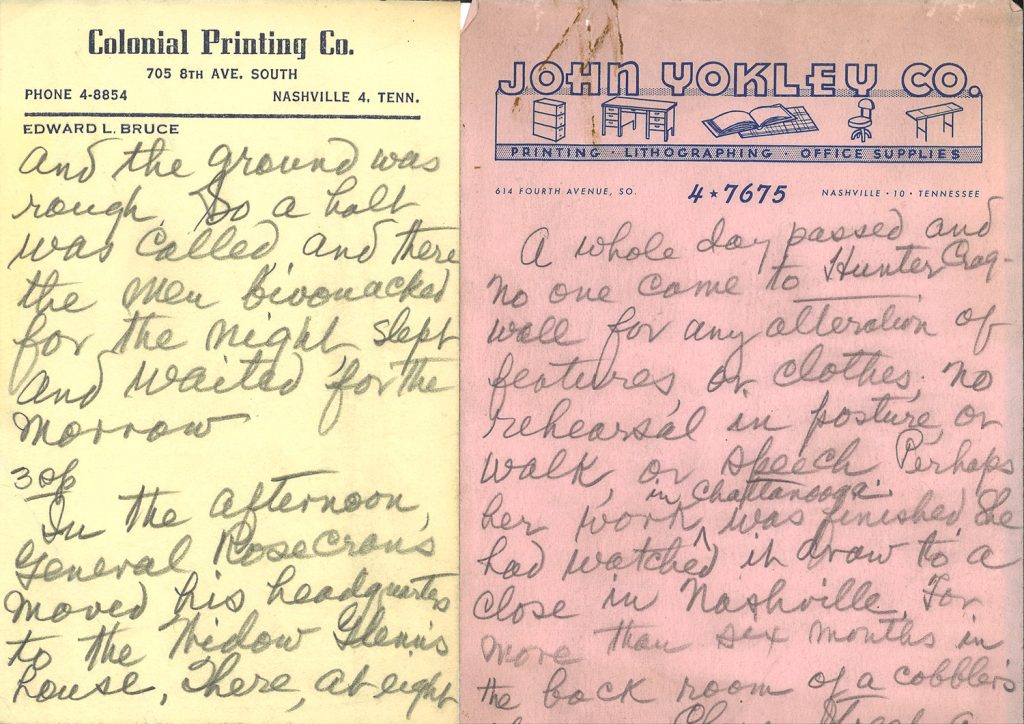 Colonial Printing Co.
705 8TH AVE. SOUTH
PHONE 4-8854 NASHVILLE 4, TENN.
EDWARD L. BRUCE
and the ground was
rough. So a halt
was called and there
the men bivouacked
for the night slept
and waited for the
morrow
3 sp
In the afternoon,
General Rosecrans
moved his headquarters
to the Widow Glenn's
house. There, at eight
JOHN YOKLEY CO.
PRINTING · LITHOGRAPHING OFFICE SUPPLIES
614 FOURTH AVENUE, SO. 4★7675 NASHVILLE · 10 · TENNESSEE
A whole day passed and
no one came to Hunter Crag-
wall for any alteration of
features, or clothes, no
rehearsal in posture, or
walk, or speech Perhaps
in Chattanooga
her work was finished She
had watched it draw to a
close in Nashville. For
more than six months in
the back room of a cobbler's